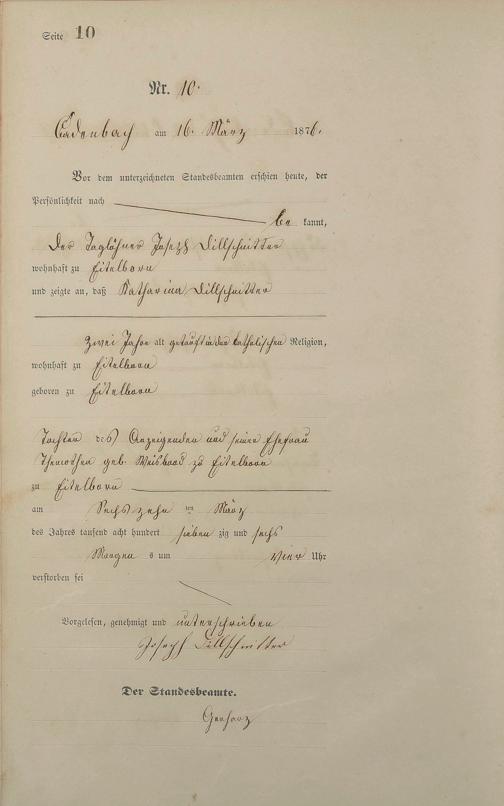 Seite 10
Nr. 10.
Cadenbach am 16. März 1876.
Vor dem unterzeichneten Standesbeamten erschien heute, der
Persönlichkeit nach
be kannt,
der Taglöhner Joseph Dillschnitter
wohnhaft zu Eitelborn
und zeigte an, daß Katharina Dillschnitter
zwei Jahre alt getauft in der katholischen Religion,
wohnhaft zu Eitelborn
geboren zu Eitelborn
Tochter des Anzeigenden und seiner Ehefrau
geb. zu Eitelborn
zu Eitelborn
am Sechs zehn ten März
des Jahres tausend acht hundert sieben zig und sechs
Morgen s um vier Uhr
verstorben sei
Vorgelesen, genehmigt und unterschrieben
Joseph Dillschnitter
Der Standesbeamte.
Gerharz